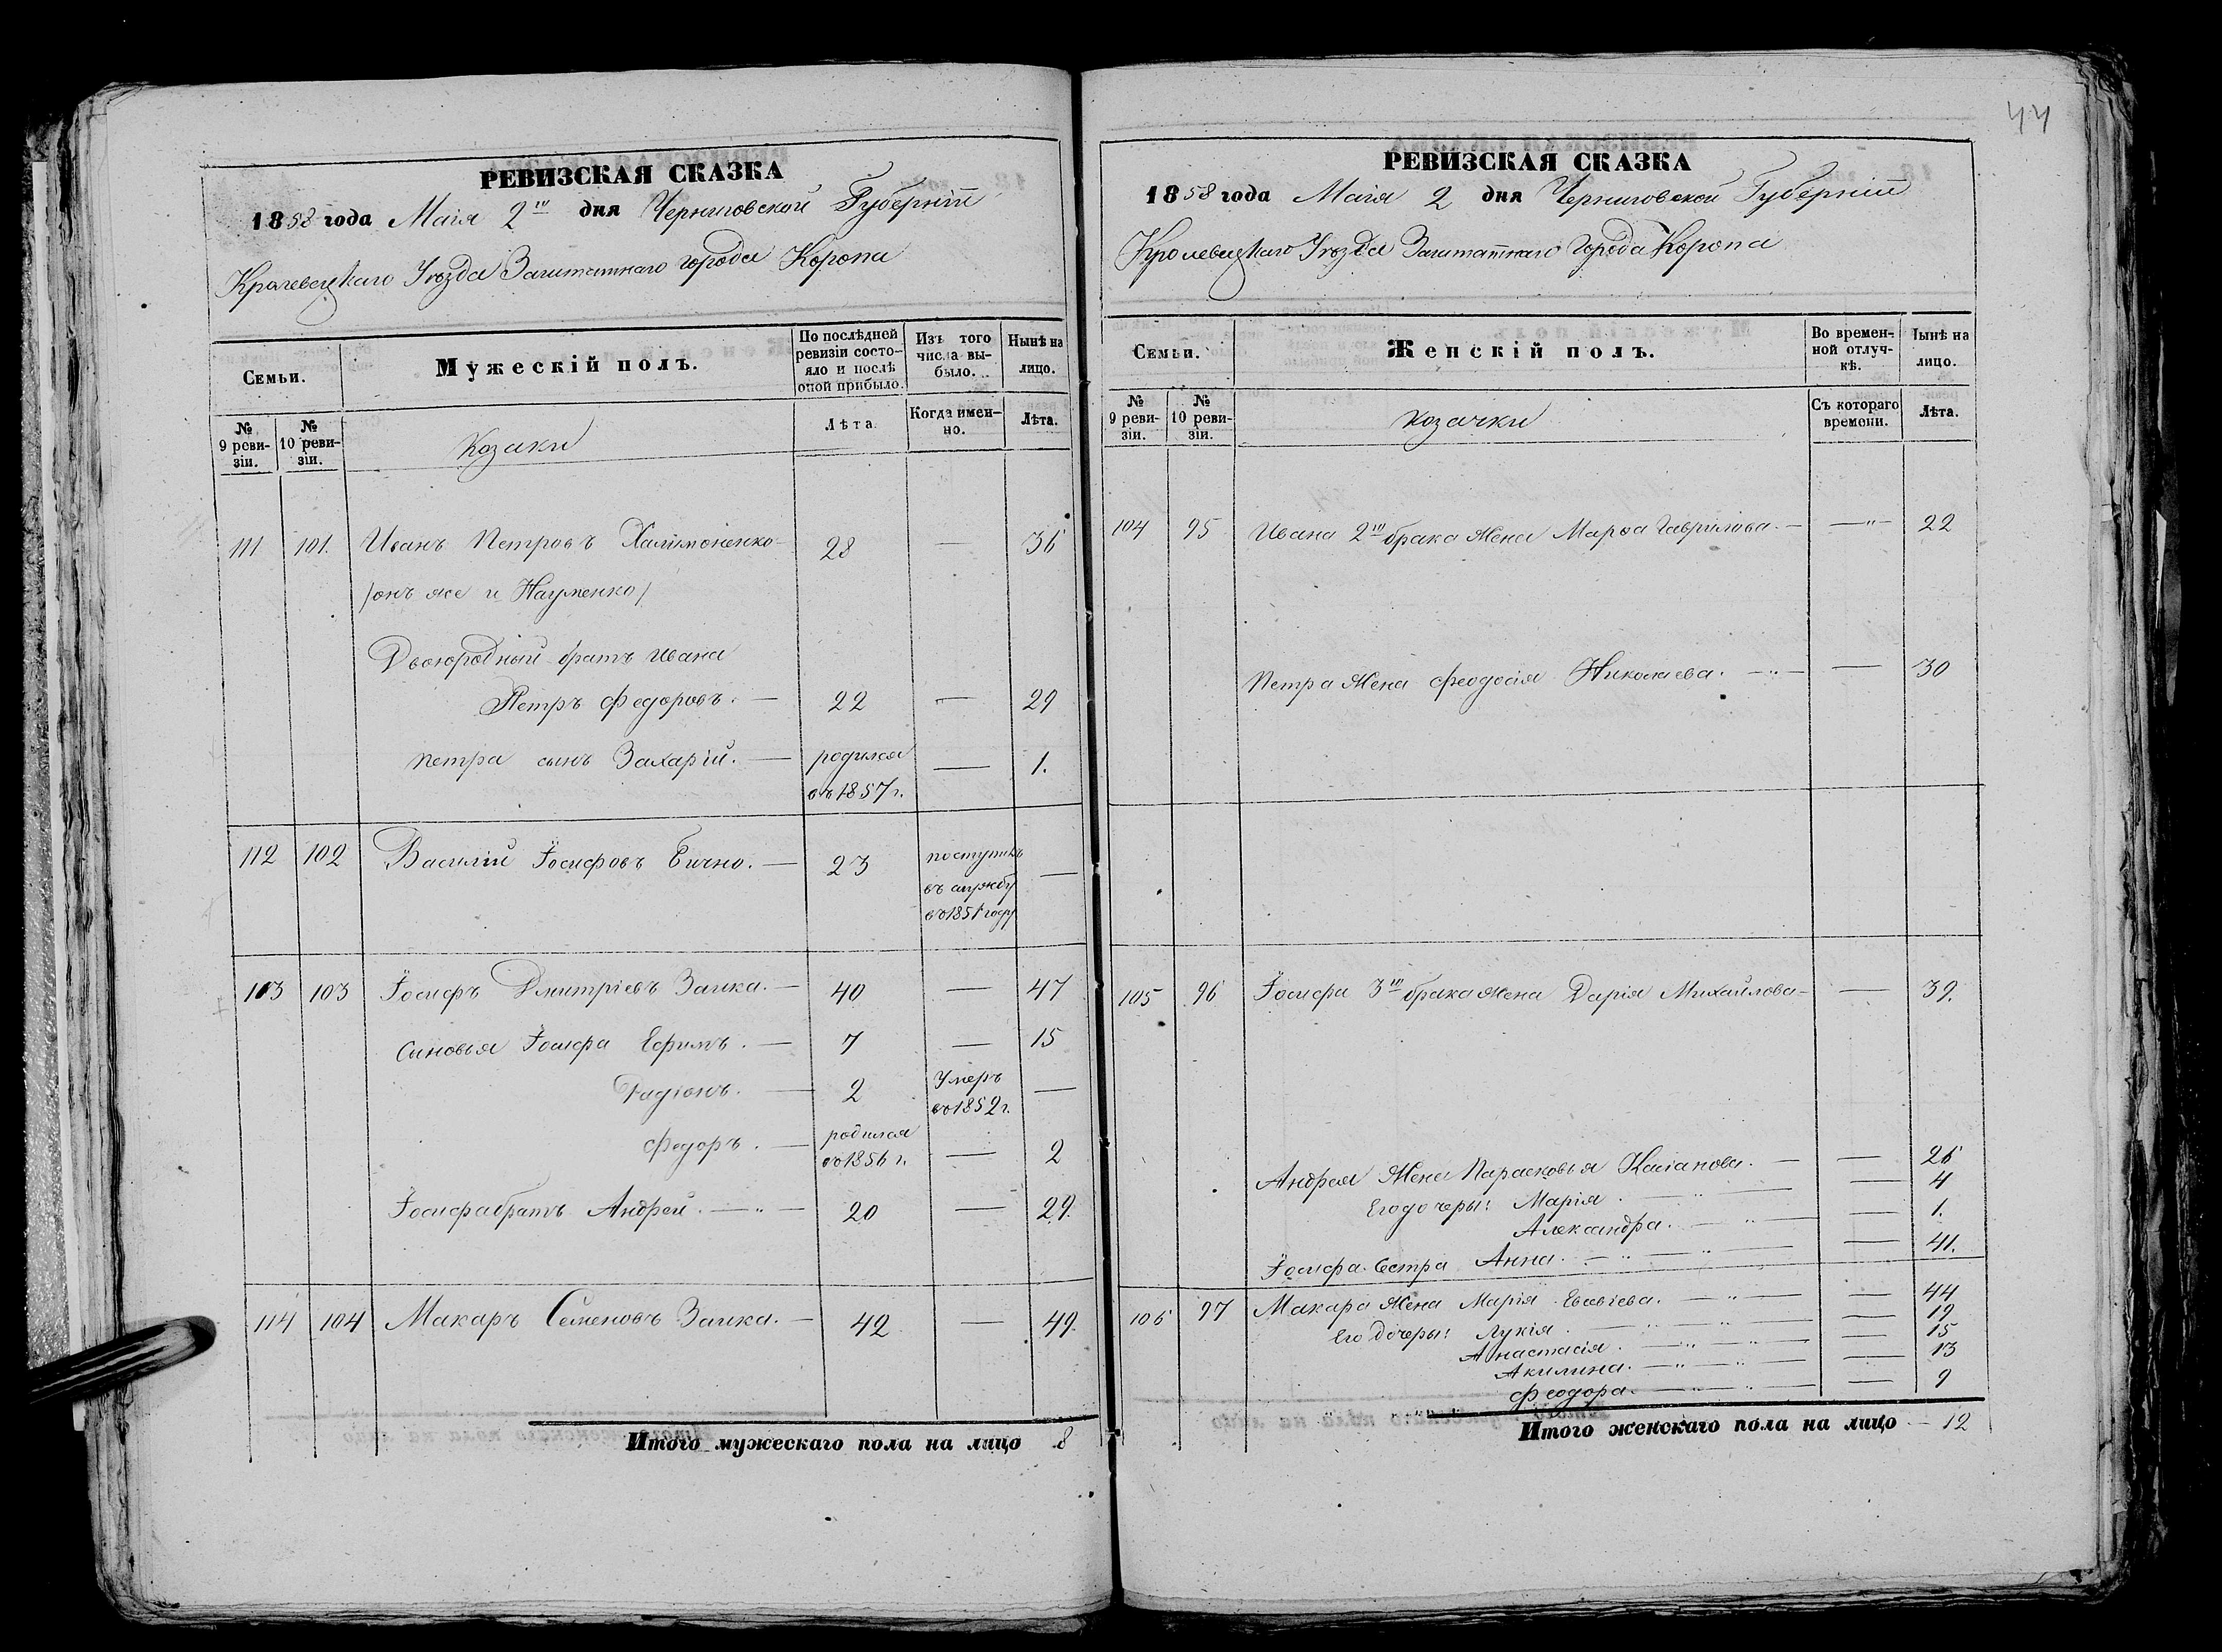 44
РЕВИЗСКАЯ СКАЗКА
1858 года Маія 2го дня Черниговской Губерніи
Кролевецкаго Уѣзда Заштатнаго города Коропа
Семьи.
Мужескій полъ.
По послѣдней ревизіи состояло и послѣ оной прибыло.
Изъ того числа выбыло.
Нынѣ на лицо.
№ 9 ревизіи.
№ 10 ревизіи.
Козаки
Лѣта
Когда именно.
Лѣта.
111 101. Иванъ Петровъ Халимоненко- 28 — 36
/онъ же и Науменко/
Двоюродный братъ Ивана
Петръ Федоровъ. — 22 — 29
Петра сынъ Захарій. — родился — 1.
въ 1857 г.
112 102 Василій Іосифовъ Бичко. — 23 поступилъ —
въ службу
въ 1851 году
113 103 Іосифъ Дмитріевъ Заика. — 40 — 47
Синовья Іосифа Ефимъ. — 7 — 15
Радіонъ. — 2 Умеръ —
въ 1852 г.
Федоръ. — родился — 2
въ 1856 г.
Іосифа братъ Андрей. — „ — 20 — 29.
114 104 Макаръ Семеновъ Заика. — 42 — 49.
Итого мужескаго пола на лицо 8
РЕВИЗСКАЯ СКАЗКА
1858 года Маія 2 дня Черниговской Губерніи
Кролевецкаго Уѣзда Заштатнаго Города Коропа
Семьи.
Женскій полъ.
Во временной отлучкѣ.
Нынѣ на лицо.
№ 9 ревизіи.
№ 10 ревизіи.
Козачки
Съ котораго времени.
Лѣта.
104 95 Ивана 2го брака Жена Марѳа Гаврилова. — — „ — 22
Петра Жена Феодосія Николаева. — „ — — 30
105 96 Іосифа 3го брака Жена Дарія Михайлова — — 39.
Андрея Жена Парасковья Касіанова. — — 26
Его дочеры: Марія. — „ — — 4
Александра. — „ — — 1.
Іосифа Сестра Анна. — „ — „ — — 41.
106 97 Макара Жена Марія Евсѣвіева. — „ — — 44
Его Дочеры: Лукія. — „ — „ — — 19
Анастасія. — „ — „ — 15
Акилина. — „ — „ — — 13
Феодора. — „ — „ — — 9
Итого женскаго пола на лицо — 12